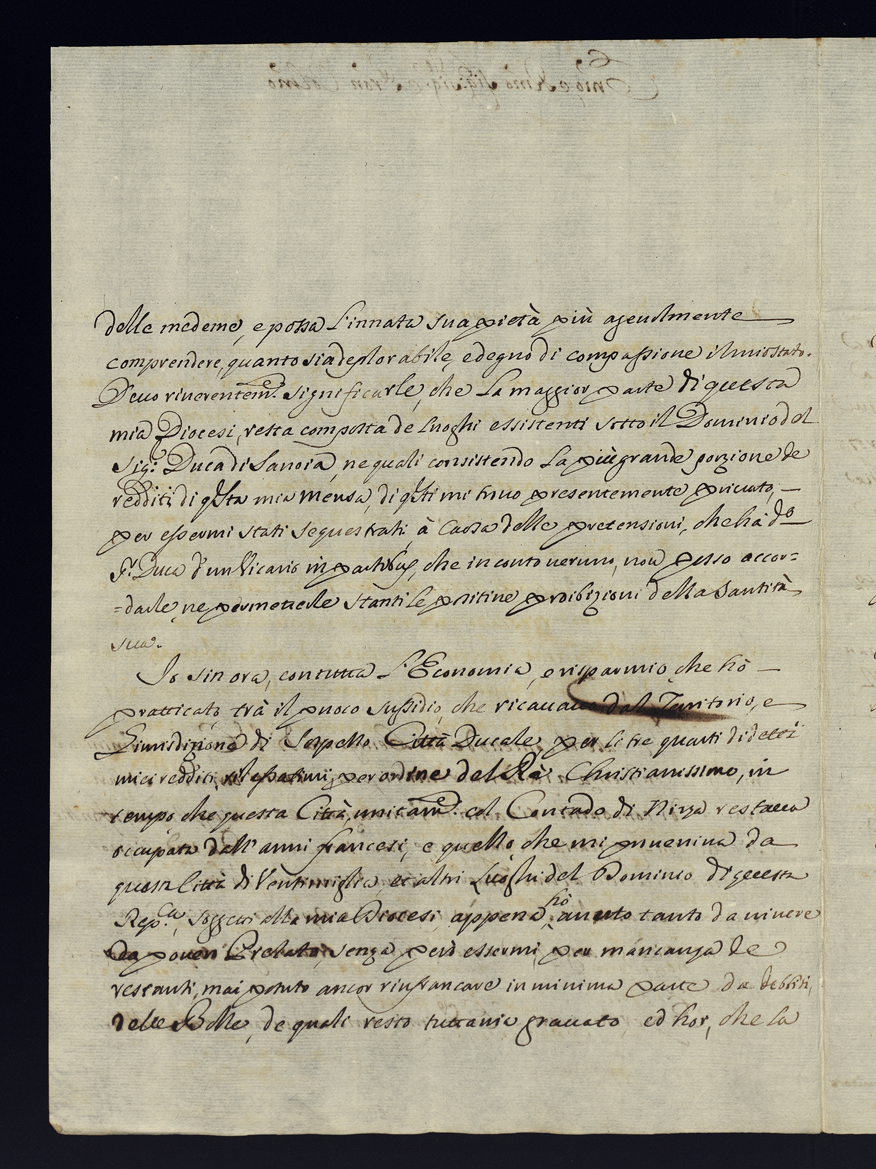 delle medeme, e possa l'innata sua pietà più ageuolmente
comprendere, quanto sia deplorabile, e degno di compassione il mio stato.
Deuo riuerentem.e significarle, che la maggior parte di questa
mia Diocesi, resta composta de luoghi essistenti sotto il Dominio del
Sig.r Duca di Sauoia, ne quali consistendo la più grande porzione de
redditi di q.sta mia mensa, di q.sti mi truo presentemente priuato,
per essermi stati sequestrati à causa delle pretensioni, che hà d.o
S.r Duca d'un Vicario in partibus, che in conto ueruno, non posso accor=
=darle, ne permetterle stanti le positiue proibizioni della Santità
sua.
Io sin ora, con tutta l'Economia, e risparmio, che hò
pratticato, trà il puoco sussidio, che ricauauo dal Territorio, e
Giurisdizione di Sospello Città Ducale per li tre quarti di detti
miei redditi, per ordine del Rè Christianissimo, in
tempo che questa Città, unitam.e col Contado di Nizza restaua
occupata dall'armi francesi, e quello che mi proueniua da
questa Città di Ventimiglia et altri Luoghi del Dominio di questa
Rep.ca, soggetti alla mia Diocesi, appena hò auuto tanto da uiuere
da pouero Prelato, senza però essermi per mancanza de
restanti, mai potuto ancor rinfrancare in minima parte da debiti,
delle Bolle, de quali resto tuttauia grauato ed hor, che la